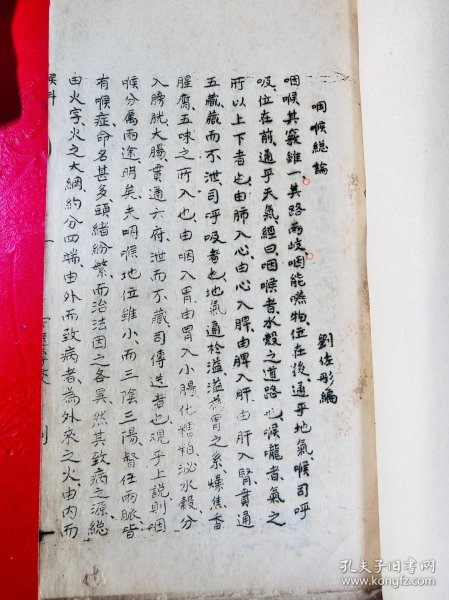 咽喉總論
劉佐彤編
咽喉其竅雖一其路兩歧咽能嚥物位在後通乎地氣喉司呼
吸位在前通乎天氣經曰咽喉者水穀之道路也喉嚨者氣之
所以上下者也由肺入心由心入脾由脾入肝由肝入腎貫通
五藏藏而不泄司呼吸者也地氣通於溢溢者胃之系燥焦香
腥腐五味之所入也由咽入胃由胃入小腸化精粕泌水穀分
入膀胱大腸貫通六府泄而不藏司傳送者也觀乎上說則咽
喉分屬兩途明矣夫咽喉地位雖小而三陰三陽督任兩脈皆
有喉症命名甚多頭緒紛繁而治法因之各異然其致病之源總
由火字火之大綱約分四端由外而致病者為外來之火由內而
喉科
孔夫子旧书网
www.kongfz.com